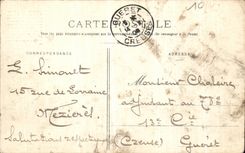 10
CARTE POSTALE
GUÉRET
CREUSE
CORRESPONDANCE
ADRESSE
L. Simonet
15 rue de Lorraine
Mézières
Salutations
Monsieur
adjudant au 78e
13e Cie
(Creuse) Guéret